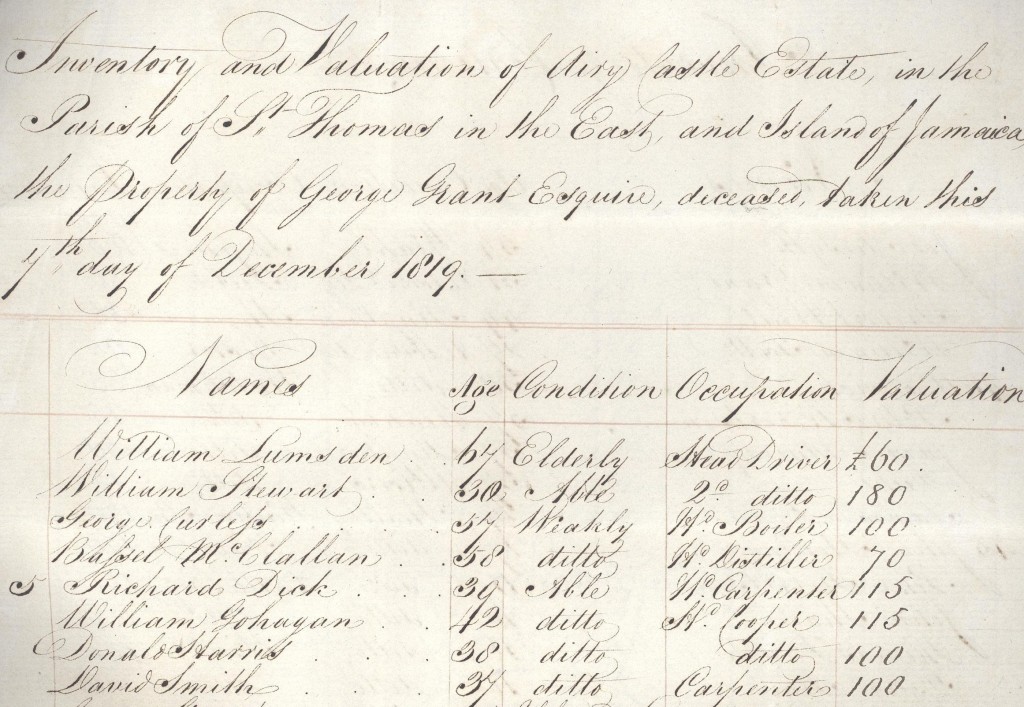 Inventory and Valuation of Airy Castle Estate, in the
Parish of St. Thomas in the East, and Island of Jamaica,
the Property of George Grant Esquire, deceased, taken this
7th day of December 1819. —
Names Age Condition Occupation Valuation
William Lumsden . 67 Elderly Head Driver £60.
William Stewart . . 30 Able 2d ditto 180
George Curless . . 57 Weakly Hd. Boiler 100
Bassel McClallan . . 58 ditto Hd. Distiller 70
5 Richard Dick . . . 30 Able Hd. Carpenter 115
William Gohagan . . 42 ditto Hd. Cooper 115
Donald Harris . . . . 38 ditto ditto 100
David Smith . . . . 37 ditto Carpenter 100